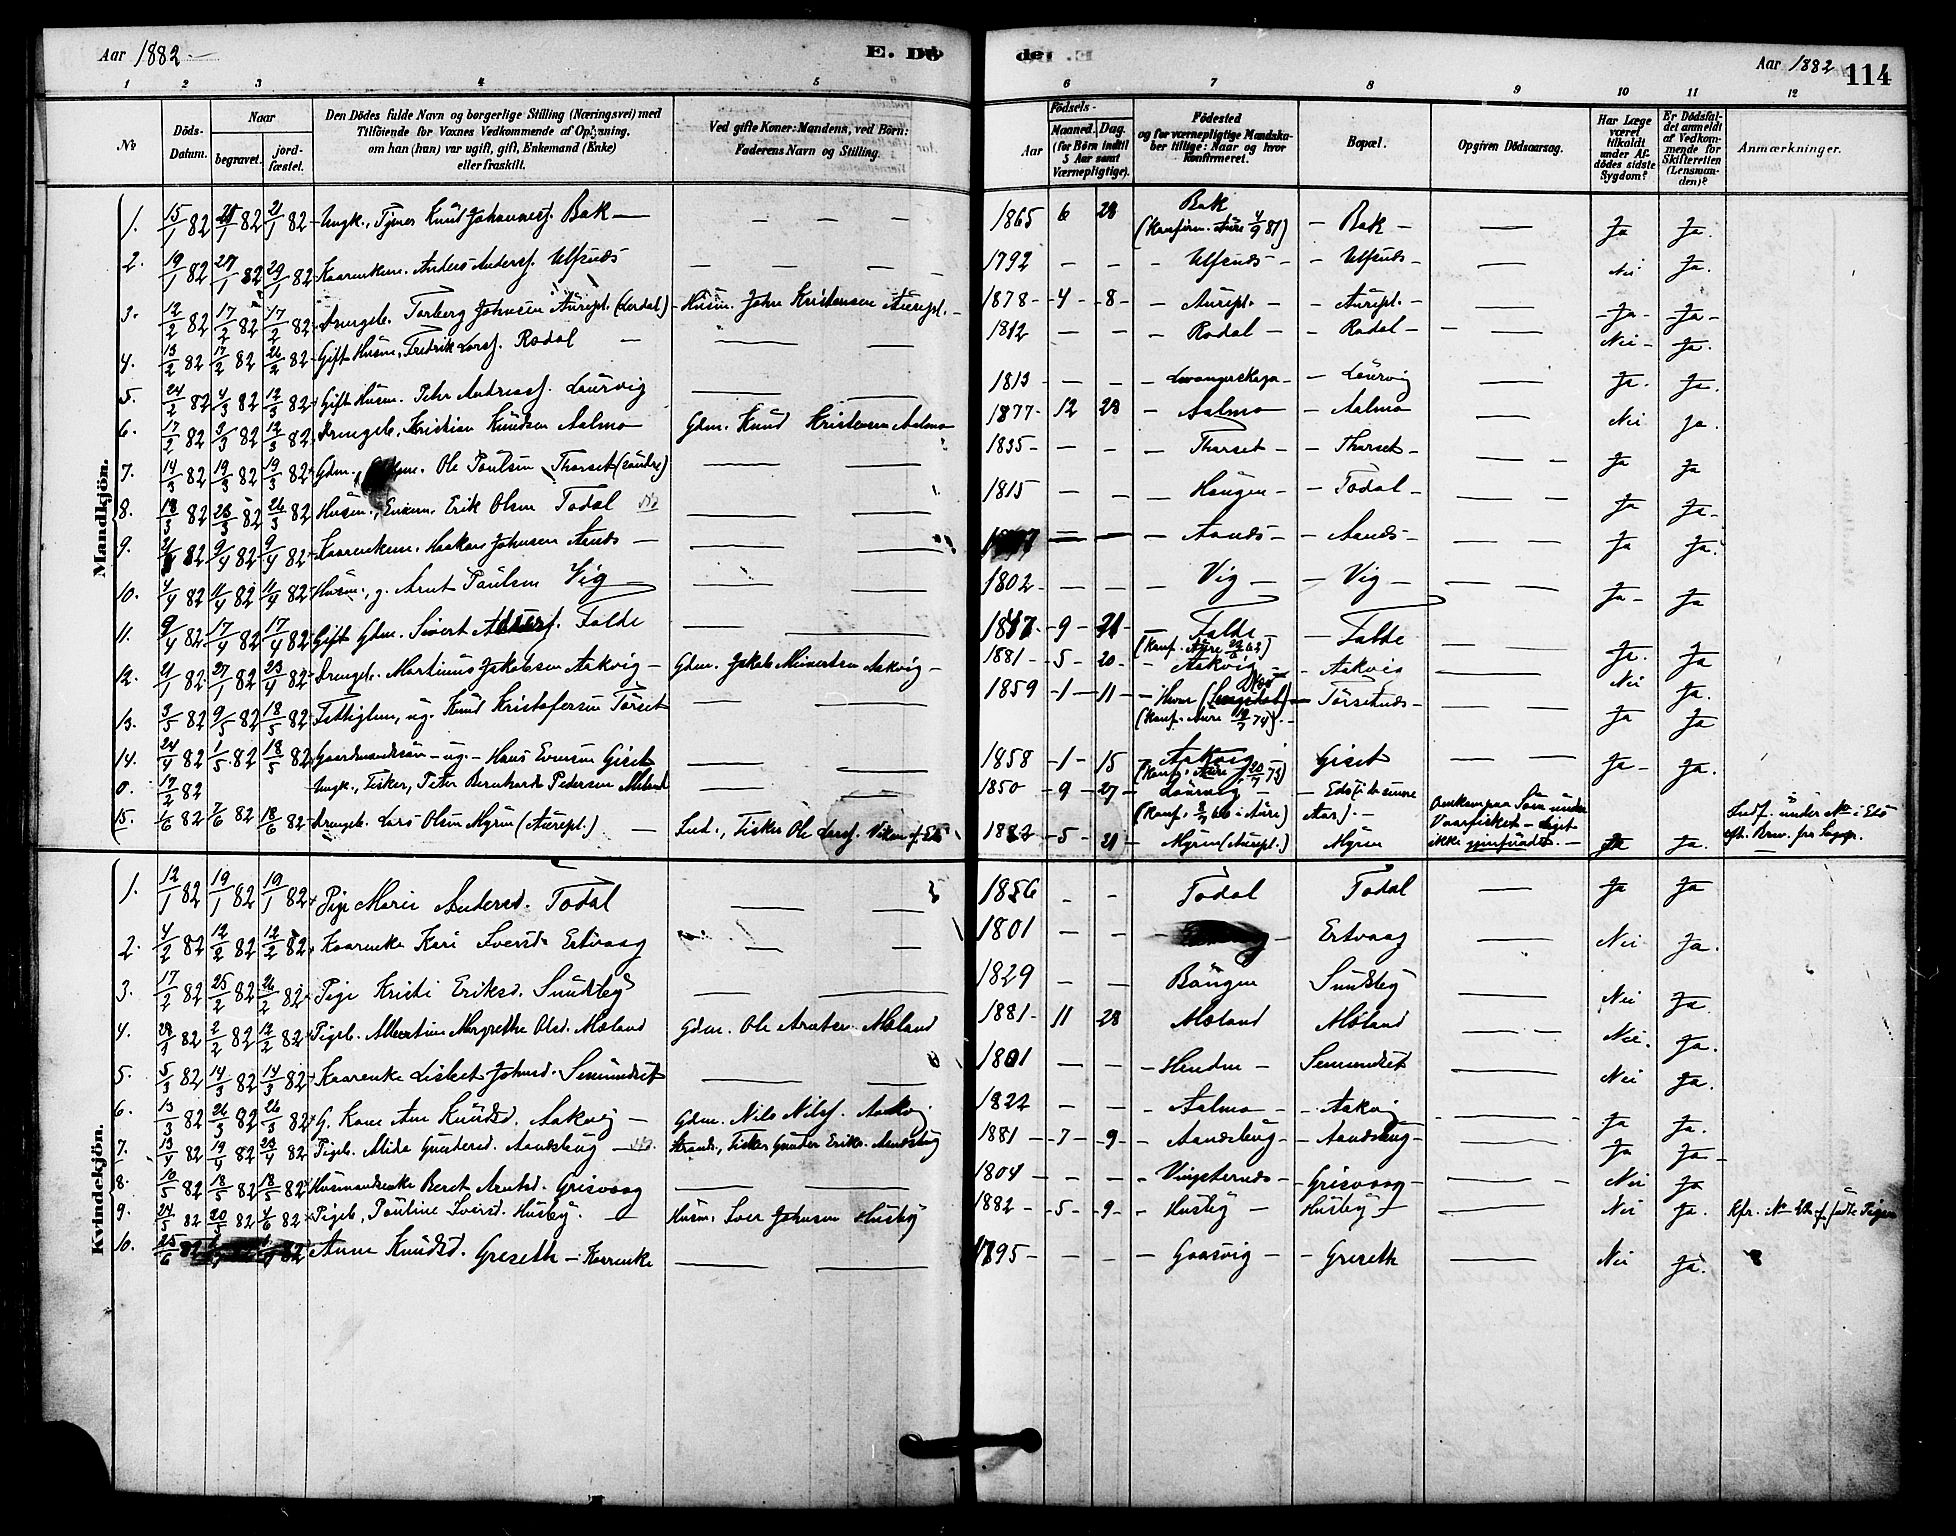 Aar 1882 E. Dö
1 2 3 4 5
No Döds-Datum. Naar begravet. jord-fæstet. Den Dödes fulde Navn og borgerlige Stilling (Næringsvei) med Tilföiende for Voxnes Vedkommende af Oplysning. om han (hun) var ugift, gift, Enkemand (Enke) eller fraskilt. Ved gifte Koner: Mandens, ved Börn: Faderens Navn og Stilling.
Mandkjön.
1. 15/1 82 21/1 82 Ungk., Knud Johannesf. Bak
2. 19/1 82 29/1 82 Kaarenkem. Anders Andersf. Ulfsnæs
3. 12/2 82 17/2 82 17/2 82 Drengeb. Torberg Johnsen Aurept. (Lerdal) Husm. John Kristensen Aurept.
4. 13/2 82 17/2 82 26/2 82 Gift Husm., Fredrik Larsf. Rodal
5. 24/2 82 4/3 82 12/3 82 Gift Husm. Peter Andreasf. Laurvig
6. 17/2 82 3/3 82 12/3 82 Drengeb. Kristian Knudsen Aalmo Gdm. Knud Kristensen Aalmo
7. 14/3 82 19/3 82 19/3 82 Gdm., Ole Paulsen Thorset (søndre)
8. 18/3 82 25/3 82 26/3 82 Husm., Enkem. Erik Olsen Todal
9. 82 9/4 82 9/4 82 Kaarenkem. Haakon Johnsen Aands
10. 4/4 82 11/4 82 11/4 82 Husm., g. Arnt Paulsen Vig
11. 9/4 82 17/4 82 17/4 82 Gift Gdm. Sivert Folde
12. 21/1 82 27/1 82 23/4 82 Drengeb. Martinus Jakobsen Aakvig Gdm. Jakob Meiertsen Aakvig
13. 3/5 82 9/5 82 18/5 82 Fattiglem, ug. Knud Kristofersen Torset
14. 24/4 82 1/5 82 18/5 82 Gaardmandssøn - ug. - Hans Evensen Giset
0. 17/2 82 Ungk., Fisker, Peter Bernhard Pedersen
15. 1/6 82 7/6 82 18/6 82 Drengeb. Lars Olsen Myren (Aurept.) Ind., Fisker Ole Larsf.
Kvindekjön.
1. 12/1 82 19/1 82 19/1 82 Pige Marie Andersd. Todal
2. 4/2 82 12/2 82 12/2 82 Kaarenke Kari Iversd. Ertvaag
3. 17/2 82 25/2 82 26/2 82 Pige Kristi Eriksd. Sundsby
4. 82 2/2 82 12/2 82 Pigeb. Albertine Margrethe Olsd. Møland Gdm. Ole Arntsen Møland
5. 5/3 82 14/3 82 14/3 82 Kaarenke Lisbet Johnsd. Semundset
6. 13/3 82 26/3 82 26/3 82 G. Kone Ane Knudsd. Aakvig Gdm. Nils Nilsf. Aakvig
7. 13/4 82 19/4 82 23/4 82 Pigeb. Alida Gundersd. Aandsbug Strands., Fisker Gunder Eriks. Aandsbug
8. 10/5 82 18/5 82 18/5 82 Husmandsenke Beret Arntsd. Grisvaag
9. 24/5 82 82 4/6 82 Pigeb., Pauline Iversd. Husby. Husm. Iver Johnsen Husby
10. 25/6 82 82 Anne Knudsd. Greseth - Kaarenke
Aar 1882 114
6 7 8 9 10 11 12
Födsels-
Aar Maaned. Dag. (for Börn indtil 5 Aar samt Værnepligtige). Födested og for værnepligtige Mandskaber tillige: Naar og hvor Konfirmeret. Bopæl. Opgiven Dödsaarsag. Har Læge været tilkaldt under Afdödes sidste Sygdom? Er Dödsfaldet anmeldt af Vedkommende for Skifteretten (Lensmanden)? Anmærkninger.
1865 6 28 Bak (Konfirm. Aure 4/9 81) Bak Ja Ja.
1792 Ulfsnæs Ulfsnæs Nei Ja.
1878 4 8 Aurept. Aurept. Ja Ja
1812 Rodal Rodal Nei Ja.
1813 Laurvig Ja. Ja.
1877 12 28 Aalmo Aalmo Nei Ja.
1835 Thorset Thorset Ja Ja
1815 Haugen Todal Ja Ja
Aands Aands Ja Ja.
1802 Vig Vig Ja Ja
1847 9 21 Folde Folde Ja. Ja
1881 5 20 Aakvig Aakvig Nei Ja.
1859 1 11 (Konf. Aure 74) Torset Ja Ja
1858 1 15 Aakvig (Konf. Aure 73) Giset Ja Ja.
1850 9 27 Laurvig (Konf. 66 i Aure) Omkom paa Søen under Vaarfisket - Liget ikke gjenfundet.
1882 5 21 Myren (Aurept.) Myren Ja Ja.
1856 Todal Todal Ja Ja
1801 Ertvaag Nei Ja.
1829 Bøugen Sundsby Nei Ja.
1881 11 28 Møland Møland Nei. Ja.
1801 Hendne Semundset Nei Ja.
1822 Aalmo Aakvig Ja Ja.
1881 7 9 Aandsbug Aandsbug Ja Ja
1804 Grisvaag Nei Ja
1882 5 9 Husby Husby Nei Ja. Kfr. No 22 f. fødte Piger
1795 Gaasvig Greseth Nei Ja.